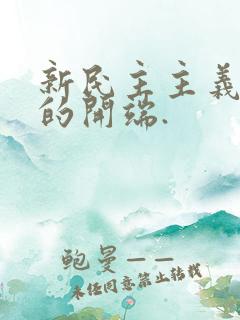 新民主主義
的開端.
鲍曼——
未经同意禁止转载